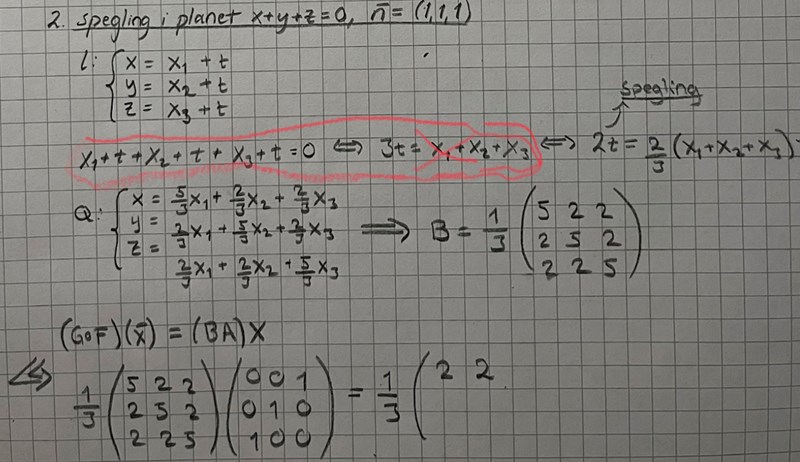 2. spegling i planet x+y+z=0, n̄ = (1,1,1)
l: { x = x₁ + t
y = x₂ + t
z = x₃ + t
spegling
x₁+t+x₂+t+x₃+t=0 ⇔ 3t=x₁+x₂+x₃ ⇔ 2t=2/3(x₁+x₂+x₃)
Q: { x = 5/3x₁+2/3x₂+2/3x₃
y = 2/3x₁+5/3x₂+2/3x₃ ⟹ B = 1/3 (5 2 2
z = 2 5 2
2/3x₁+2/3x₂+5/3x₃ 2 2 5)
(GoF)(x̄) = (BA)X
⇔ 1/3 (5 2 2 (0 0 1 = 1/3 (2 2
2 5 2 0 1 0
2 2 5) 1 0 0)